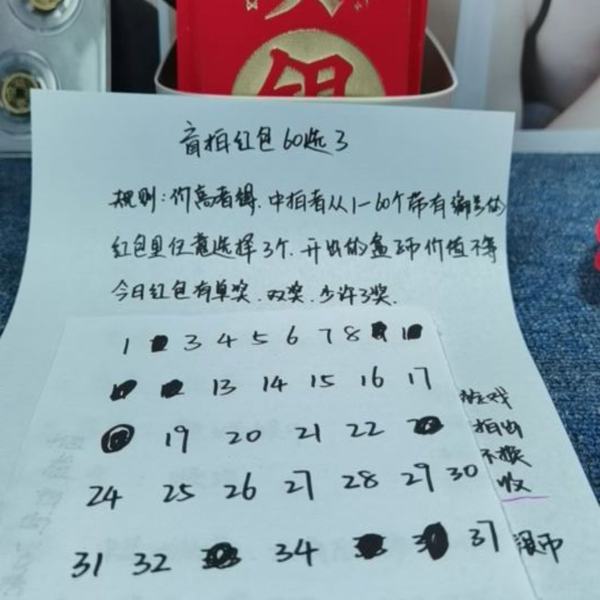 盲拍红包60选3
规则:价高者得.中拍者从1-60个带有编号的
红包里任意选择3个.开出的盒币价值不等
今日红包有单奖.双奖.少许3奖.
1 3 4 5 6 7 8
13 14 15 16 17
19 20 21 22
24 25 26 27 28 29 30
31 32 34 37
游戏
拍出
不换
收
银币